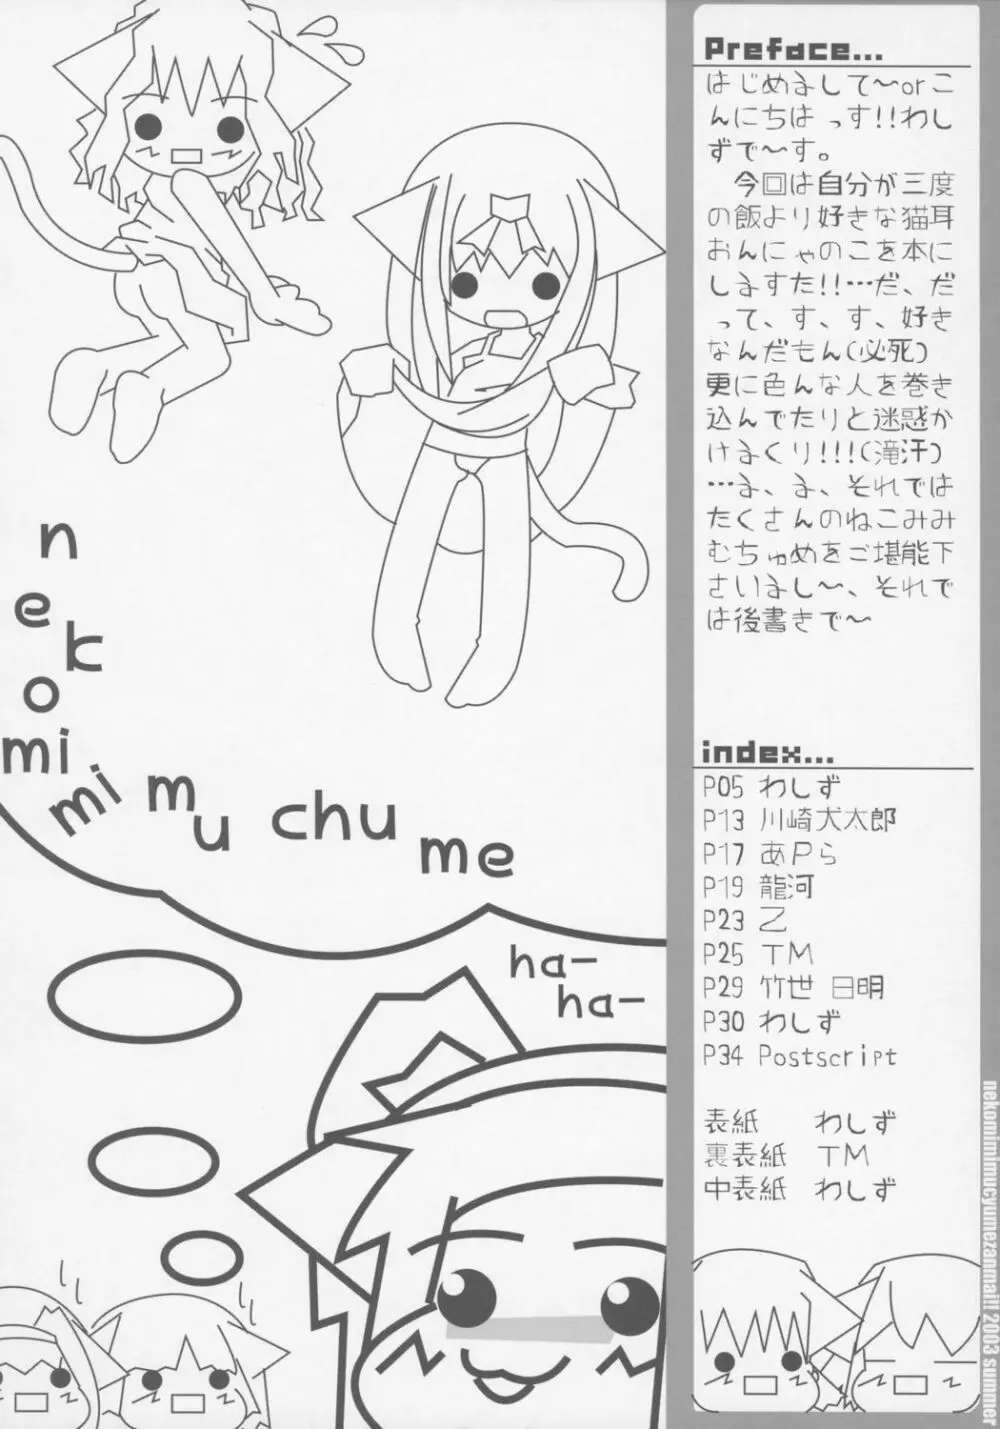 Preface...
はじめまして～orこ
んにちは っす!!わし
ずで～す。
今回は自分が三度
の飯より好きな猫耳
おんにゃのこを本に
しますた!!…だ、だ
って、す、す、好き
なんだもん(必死)
更に色んな人を巻き
込んでたりと迷惑か
けまくり!!!(滝汗)
…ま、ま、それでは
たくさんのねこみみ
むちゅめをご堪能下
さいまし～、それで
は後書きで～
index...
P05 わしず
P13 川崎犬太郎
P17 あPら
P19 龍河
P23 乙
P25 TM
P29 竹世 日明
P30 わしず
P34 Postscript
表紙 わしず
裏表紙 TM
中表紙 わしず
nekomimimucyumezanmai!! 2003 summer
nekomimi
mimuchume
ha-
ha-